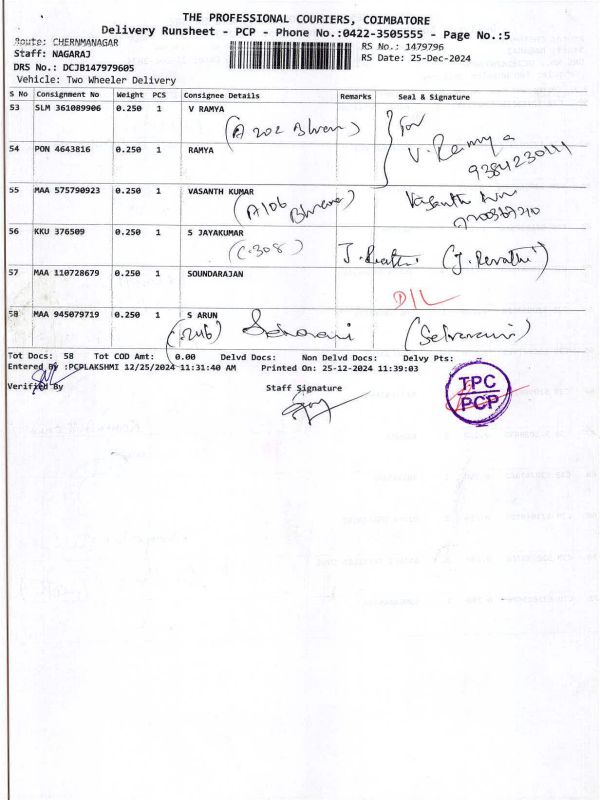 THE PROFESSIONAL COURIERS, COIMBATORE
Delivery Runsheet - PCP - Phone No.:0422-3505555 - Page No.:5
Route: CHERNMANAGAR
RS No.: 1479796
Staff: NAGARAJ
RS Date: 25-Dec-2024
DRS No.: DCJB147979605
Vehicle: Two Wheeler Delivery
S No Consignment No Weight PCS Consignee Details Remarks Seal & Signature
53 SLM 361089906 0.250 1 V RAMYA
(A 202 ) For
V. Ramya
54 PON 4643816 0.250 1 RAMYA
9384230111
55 MAA 575790923 0.250 1 VASANTH KUMAR
(A106 ) Vasanth
56 KKU 376509 0.250 1 S JAYAKUMAR
(C-308) (J. Revathi)
57 MAA 110728679 0.250 1 SOUNDARAJAN
D/L
58 MAA 945079719 0.250 1 S ARUN
(Selvarani)
Tot Docs: 58 Tot COD Amt: 0.00 Delvd Docs: Non Delvd Docs: Delvy Pts:
Entered By :PCPLAKSHMI 12/25/2024 11:31:40 AM Printed On: 25-12-2024 11:39:03
Verified By Staff Signature
TPC
PCP